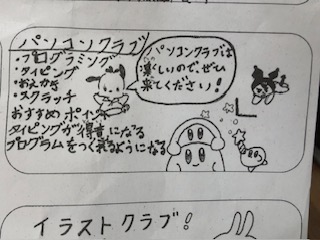 パソコンクラブ
・プログラミング
・タイピング
・おえかき
・スクラッチ
パソコンクラブは
楽しいので、ぜひ
来てください!
おすすめポイント
タイピングが得意になる
プログラムをつくれるようになる
イラストクラブ!